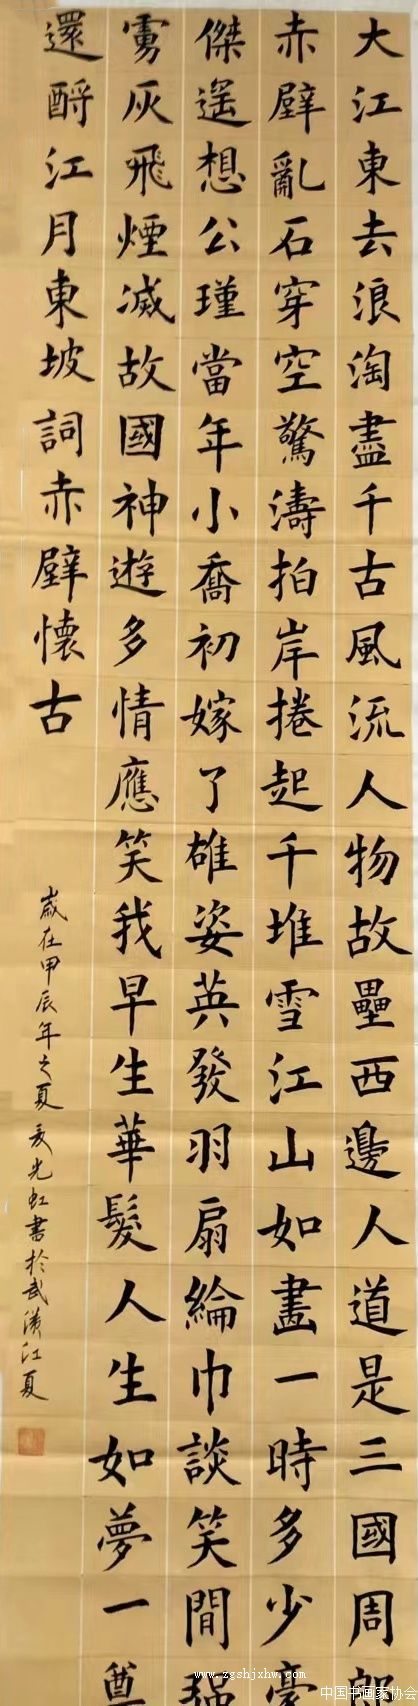 大江東去浪淘盡千古風流人物故壘西邊人道是三國周郎
赤壁亂石穿空驚濤拍岸捲起千堆雪江山如畫一時多少豪
傑遙想公瑾當年小喬初嫁了雄姿英發羽扇綸巾談笑間強
虜灰飛煙滅故國神遊多情應笑我早生華髮人生如夢一尊
還酹江月東坡詞赤壁懷古
歲在甲辰年之夏 光虹書於武漢江夏
www.zgshjxhw.com
中国书画家协会